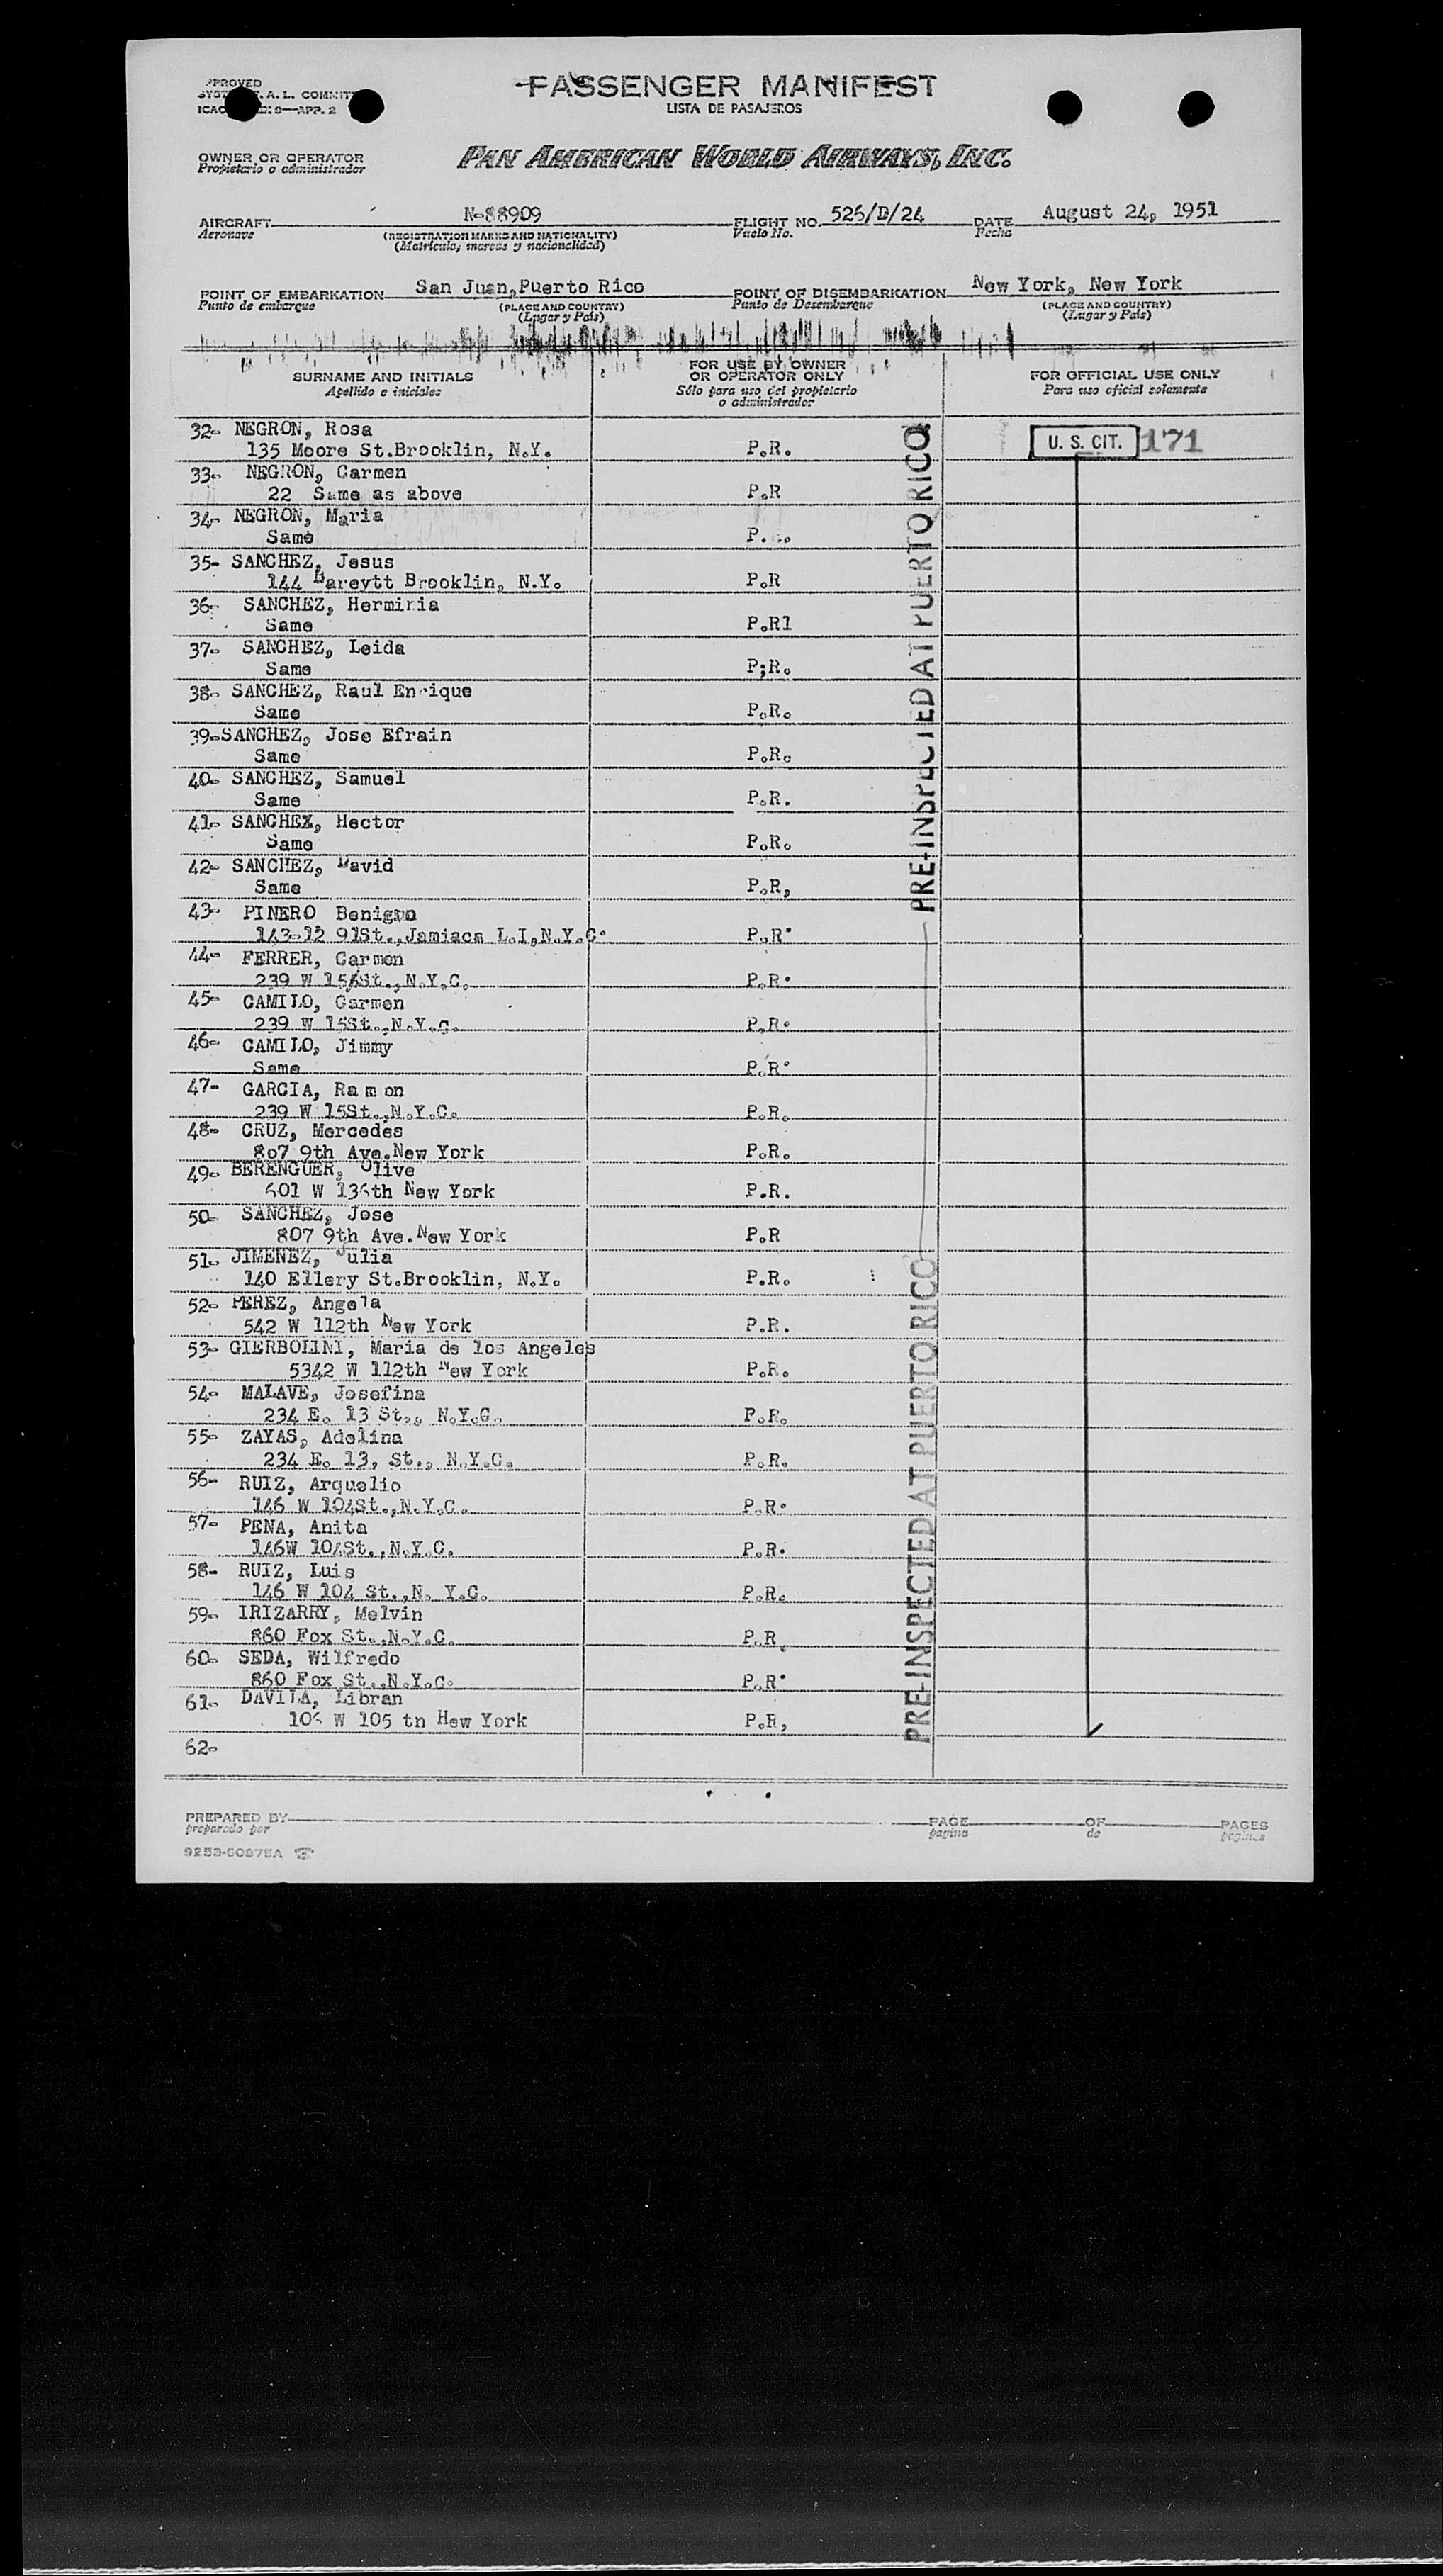 PASSENGER MANIFEST
LISTA DE PASAJEROS
PPROVED
A. L. COMMIT
ICAO 9—APP. 2
OWNER OR OPERATOR
Propietario o administrador
PAN AMERICAN WORLD AIRWAYS, INC.
AIRCRAFT N-88909 FLIGHT NO. 526/D/24 DATE August 24, 1951
Aeronave (REGISTRATION MARKS AND NATIONALITY) Vuelo No. Fecha
(Matrícula, marcas y nacionalidad)
POINT OF EMBARKATION San Juan, Puerto Rico POINT OF DISEMBARKATION New York, New York
Punto de embarque (PLACE AND COUNTRY) Punto de Desembarque (PLACE AND COUNTRY)
(Lugar y País) (Lugar y País)
SURNAME AND INITIALS FOR USE BY OWNER OR OPERATOR ONLY FOR OFFICIAL USE ONLY
Apellido e iniciales Sólo para uso del propietario o administrador Para uso oficial solamente
32- NEGRON, Rosa
135 Moore St.Brooklin, N.Y. P.R. U. S. CIT. 171
33- NEGRON, Carmen
22 Same as above P.R
34- NEGRON, Maria
Same P. .
35- SANCHEZ, Jesus
144 Bareytt Brooklin, N.Y. P.R
36- SANCHEZ, Herminia
Same P.R1
37- SANCHEZ, Leida
Same P;R.
38- SANCHEZ, Raul Enrique
Same P.R.
39-SANCHEZ, Jose Efrain
Same P.R.
40- SANCHEZ, Samuel
Same P.R.
41- SANCHEZ, Hector
Same P.R.
42- SANCHEZ, David
Same P.R,
43- PINERO Benigno
143-12 91St.,Jamiaca L.I,N.Y.C. P.R.
44- FERRER, Carmen
239 W 15St., N.Y.C. P.R.
45- CAMILO, Carmen
239 W 15St.,N.Y.C. P.R.
46- CAMILO, Jimmy
Same P.R.
47- GARCIA, Ramon
239 W 15St.,N.Y.C. P.R.
48- CRUZ, Mercedes
807 9th Ave.New York P.R.
49- BERENGUER, Olive
601 W 136th New York P.R.
50- SANCHEZ, Jose
807 9th Ave.New York P.R
51- JIMENEZ, Julia
140 Ellery St.Brooklin, N.Y. P.R.
52- PEREZ, Angela
542 W 112th New York P.R.
53- GIERBOLINI, Maria de los Angeles
5342 W 112th New York P.R.
54- MALAVE, Josefina
234 E. 13 St., N.Y.C. P.R.
55- ZAYAS, Adelina
234 E. 13, St., N.Y.C. P.R.
56- RUIZ, Arquelio
146 W 104St.,N.Y.C. P.R.
57- PENA, Anita
146W 104St.,N.Y.C. P.R.
58- RUIZ, Luis
146 W 104 St.,N. Y.C. P.R.
59- IRIZARRY, Melvin
860 Fox St.,N.Y.C. P.R.
60- SEDA, Wilfredo
860 Fox St.,N.Y.C. P.R.
61- DAVILA, Libran
106 W 105 tn Hew York P.R,
62-
PRE-INSPECTED AT PUERTO RICO
PRE-INSPECTED AT PUERTO RICO
PREPARED BY PAGE OF PAGES
preparado por pagina de paginas
9253-60975A